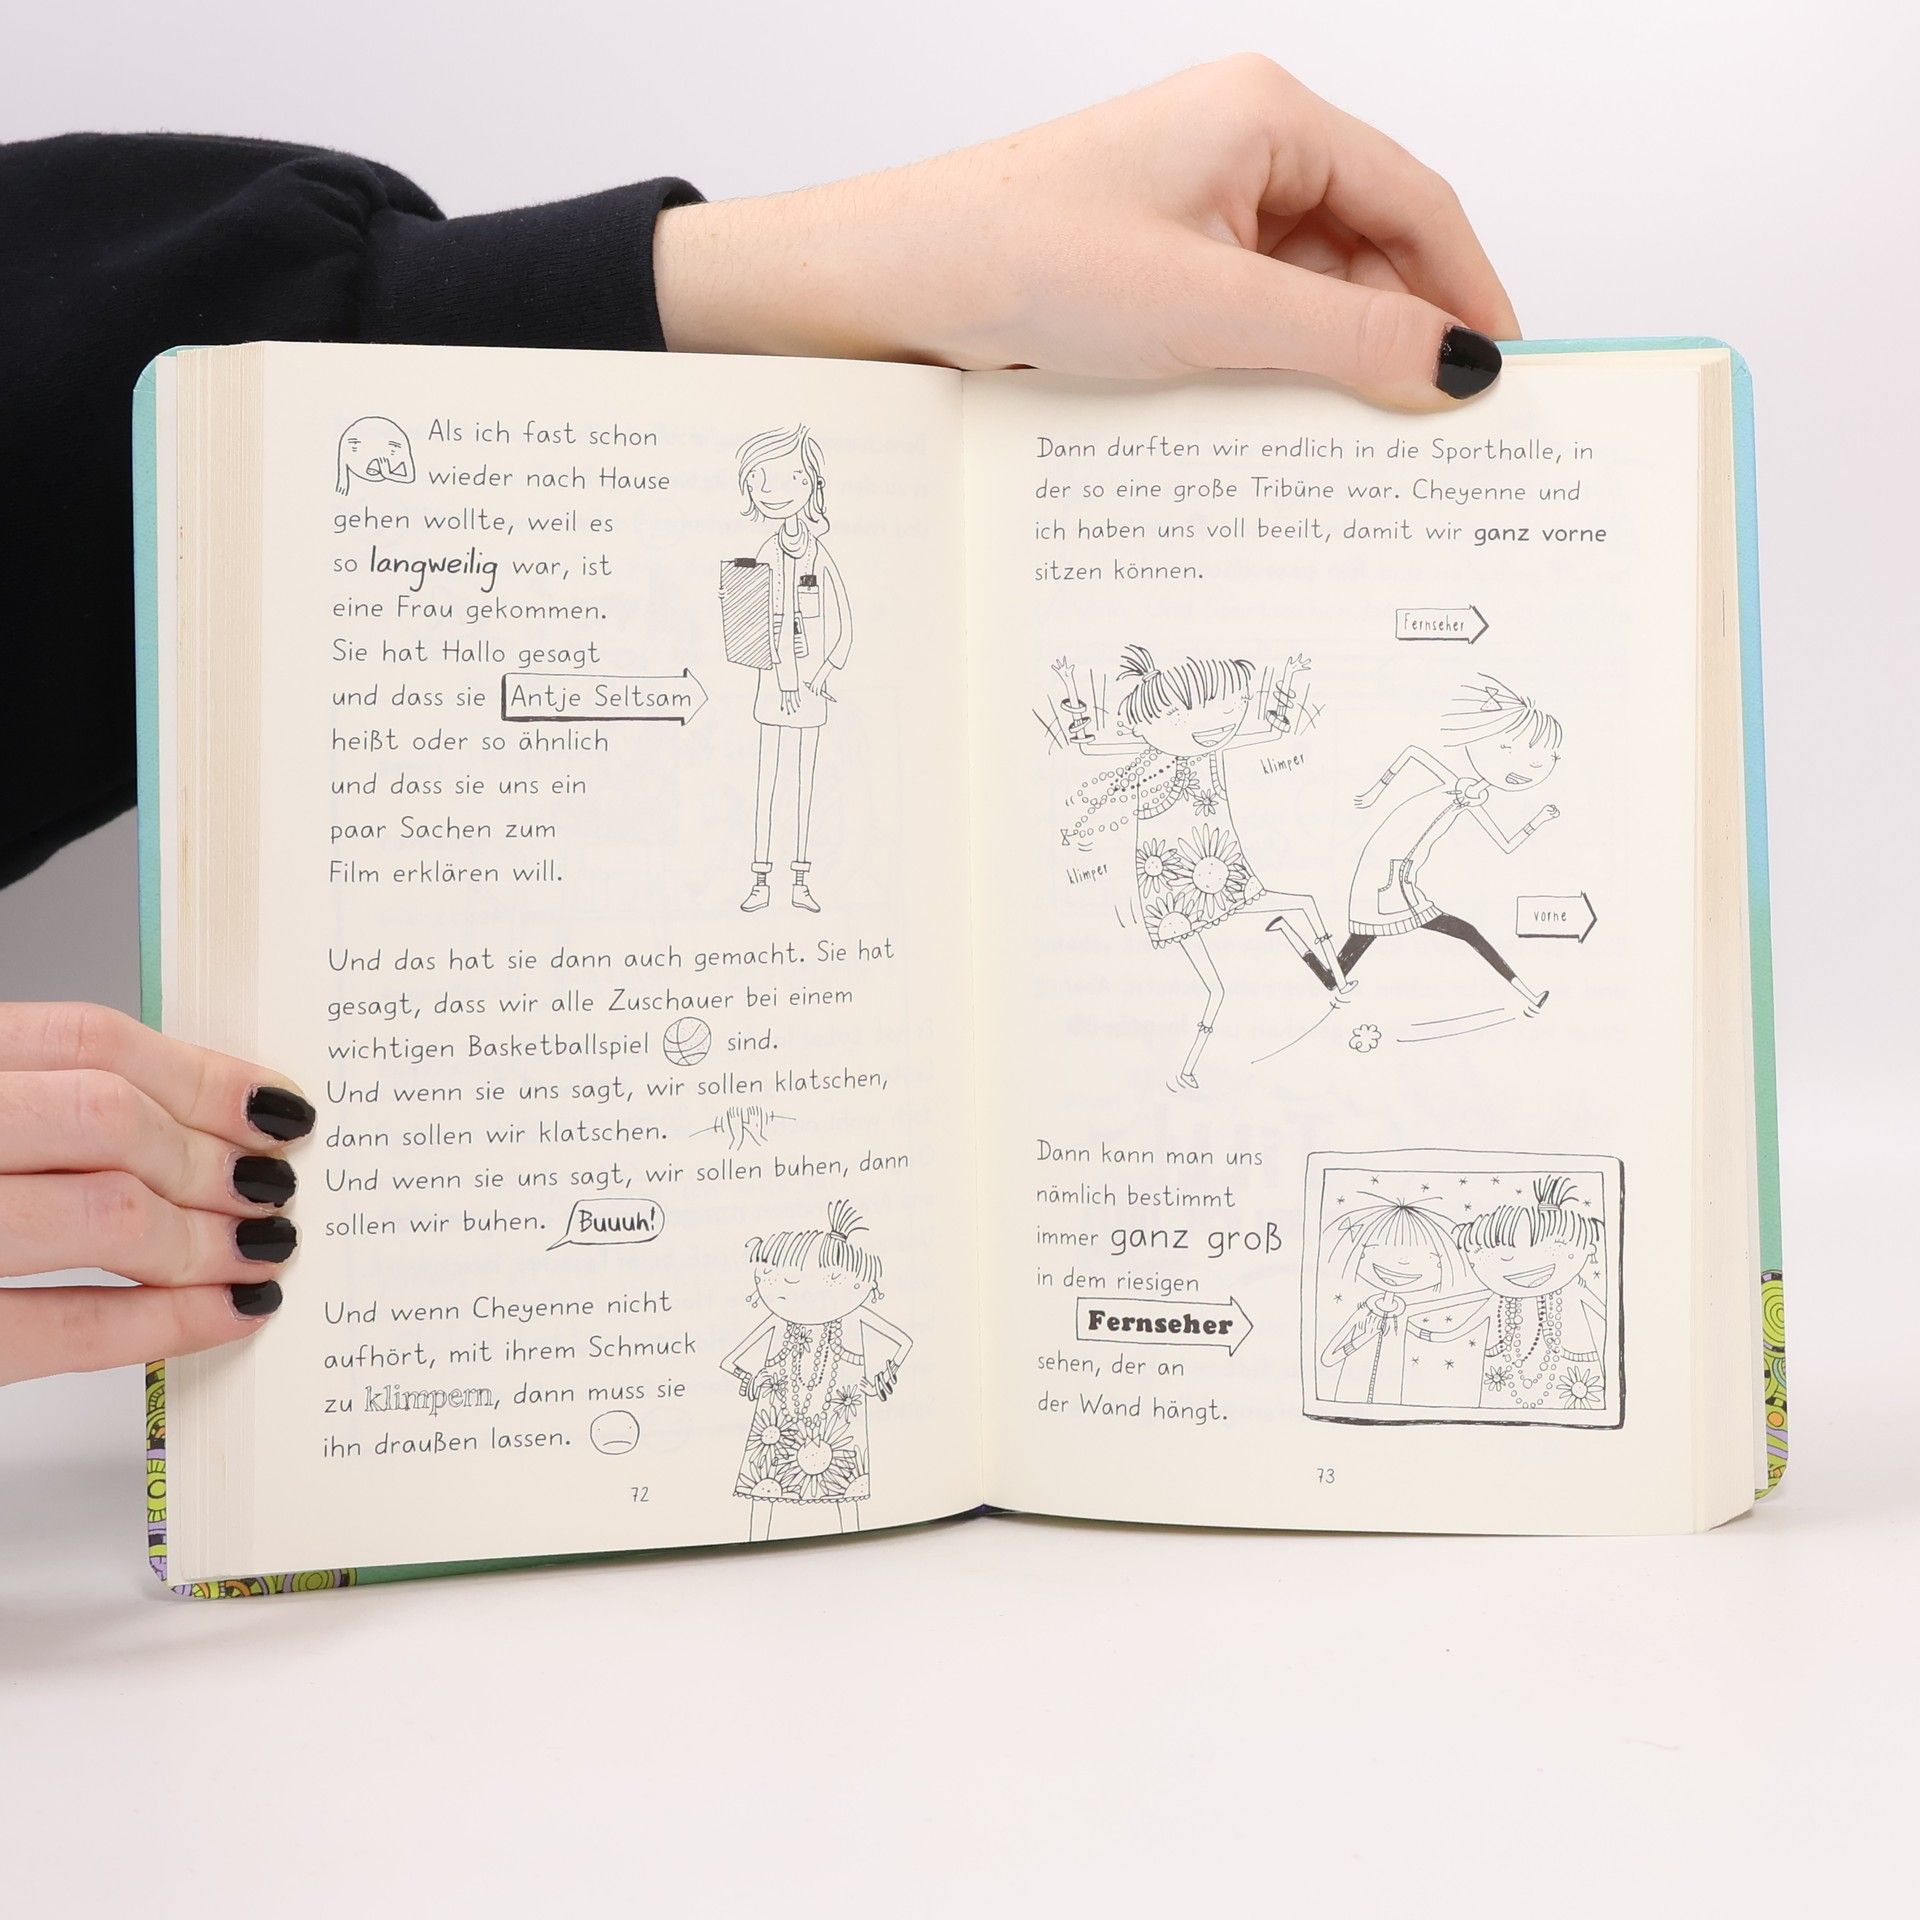 Als ich fast schon
wieder nach Hause
gehen wollte, weil es
so langweilig war, ist
eine Frau gekommen.
Sie hat Hallo gesagt
und dass sie Antje Seltsam
heißt oder so ähnlich
und dass sie uns ein
paar Sachen zum
Film erklären will.
Und das hat sie dann auch gemacht. Sie hat
gesagt, dass wir alle Zuschauer bei einem
wichtigen Basketballspiel sind.
Und wenn sie uns sagt, wir sollen klatschen,
dann sollen wir klatschen.
Und wenn sie uns sagt, wir sollen buhen, dann
sollen wir buhen. Buuuh!
Und wenn Cheyenne nicht
aufhört, mit ihrem Schmuck
zu klimpern, dann muss sie
ihn draußen lassen.
72
Dann durften wir endlich in die Sporthalle, in
der so eine große Tribüne war. Cheyenne und
ich haben uns voll beeilt, damit wir ganz vorne
sitzen können.
Fernseher
klimper
klimper
vorne
Dann kann man uns
nämlich bestimmt
immer ganz groß
in dem riesigen
Fernseher
sehen, der an
der Wand hängt.
73